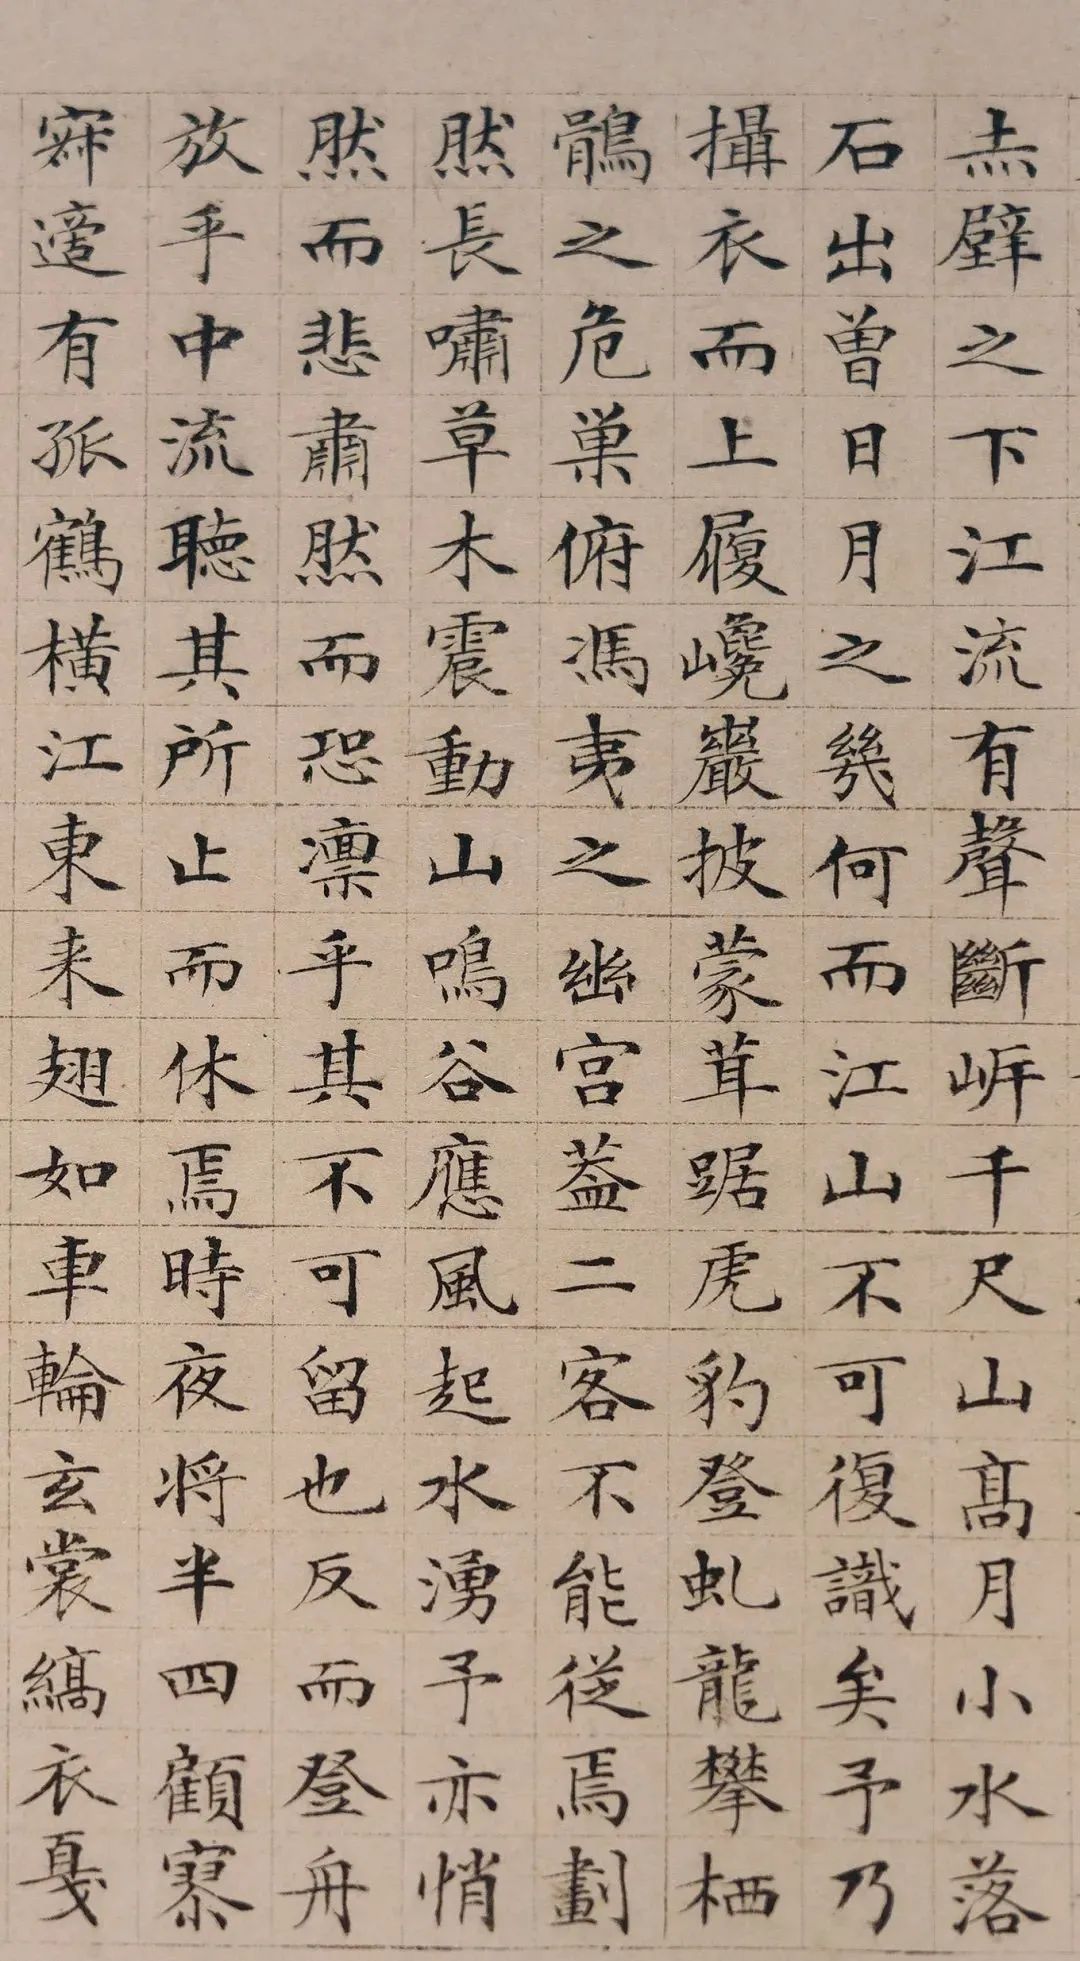 赤壁之下江流有聲斷岸千尺山高月小水落
石出曾日月之幾何而江山不可復識矣予乃
攝衣而上履巉巖披蒙茸踞虎豹登虬龍攀栖
鶻之危巢俯馮夷之幽宮蓋二客不能從焉劃
然長嘯草木震動山鳴谷應風起水湧予亦悄
然而悲肅然而恐凛乎其不可留也反而登舟
放乎中流聽其所止而休焉時夜將半四顧寂
寥適有孤鶴橫江東来翅如車輪玄裳縞衣戛